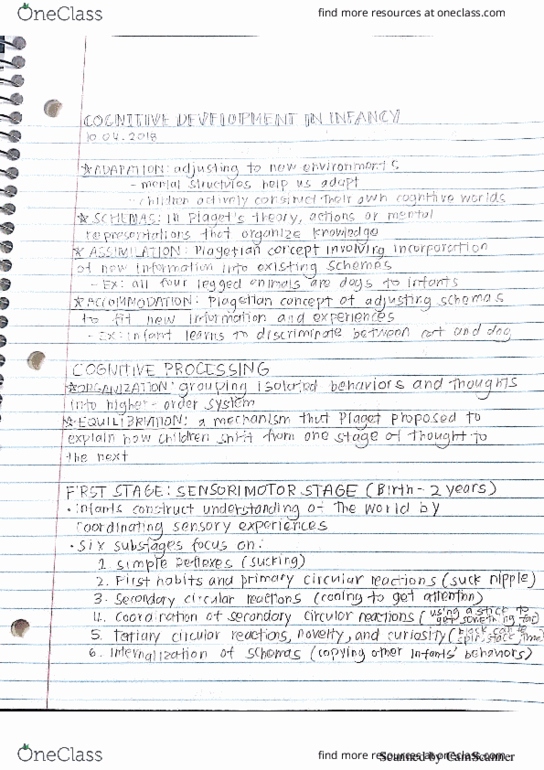 OneClass
find more resources at oneclass.com
COGNITIVE DEVELOPMENT IN INFANCY
10.04.2018
*ADAPTATION: adjusting to new environments
- mental structures help us adapt
- children actively construct their own cognitive worlds
* SCHEMAS: in Piaget's theory, actions or mental
representations that organize knowledge
* ASSIMILATION: Piagetian concept involving incorporation
of new information into existing schemes
- Ex: all four legged animals are dogs to infants
*ACCOMMODATION: Piagetian concept of adjusting schemas
to fit new information and experiences
- Ex: infant learns to discriminate between cat and dog
COGNITIVE PROCESSING
*ORGANIZATION: grouping isolated behaviors and thoughts
into higher-order system
*EQUILIBRATION: a mechanism that Piaget proposed to
explain how children shift from one stage of thought to
the next
FIRST STAGE: SENSORIMOTOR STAGE (Birth-2 years)
• infants construct understanding of the world by
coordinating sensory experiences
• Six substages focus on:
1. Simple reflexes (sucking)
2. First habits and primary circular reactions (suck nipple)
3. Secondary circular reactions (cooing to get attention)
4. Coordination of secondary circular reactions (using a stick to
get something far)
5. Tertiary circular reactions, novelty, and curiosity (block can be
spin, stack,
6. Internalization of schemas (copying other infants' behaviors)
OneClass
find more resources at oneclass.com
Scanned by CamScanner